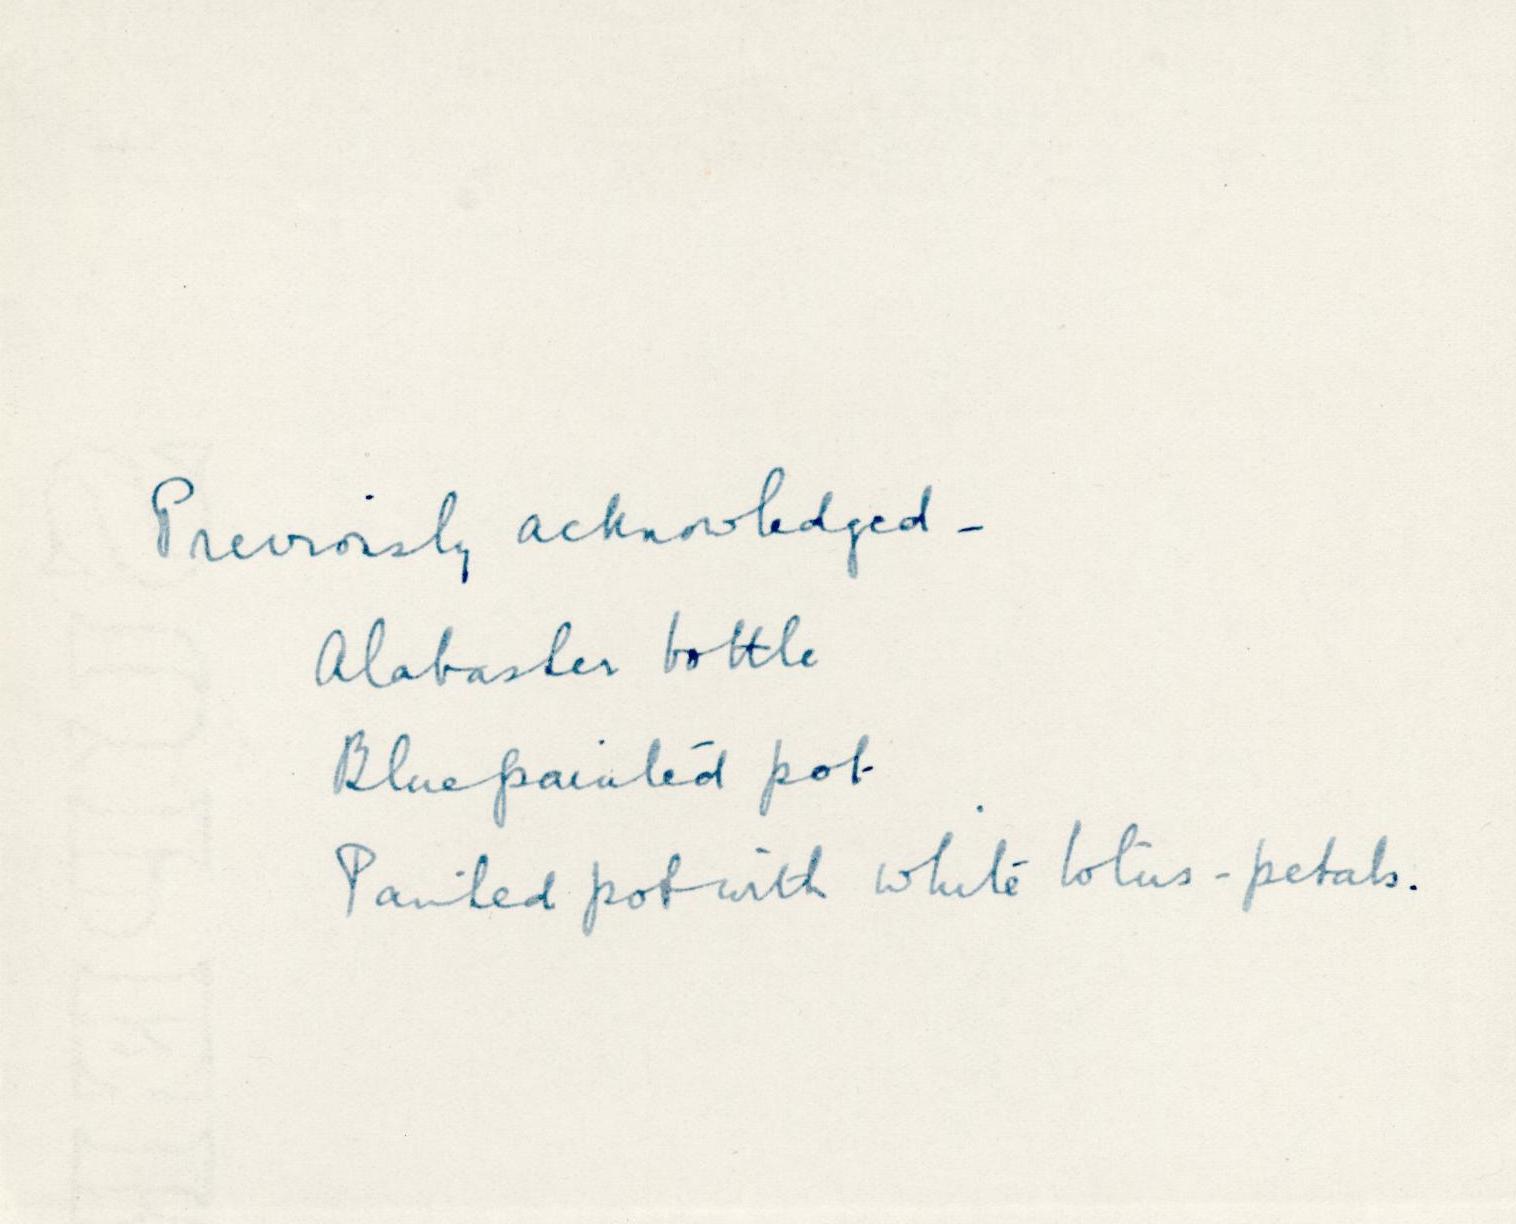 Previously acknowledged -
Alabaster bottle
Blue painted pot
Painted pot with white lotus-petals.